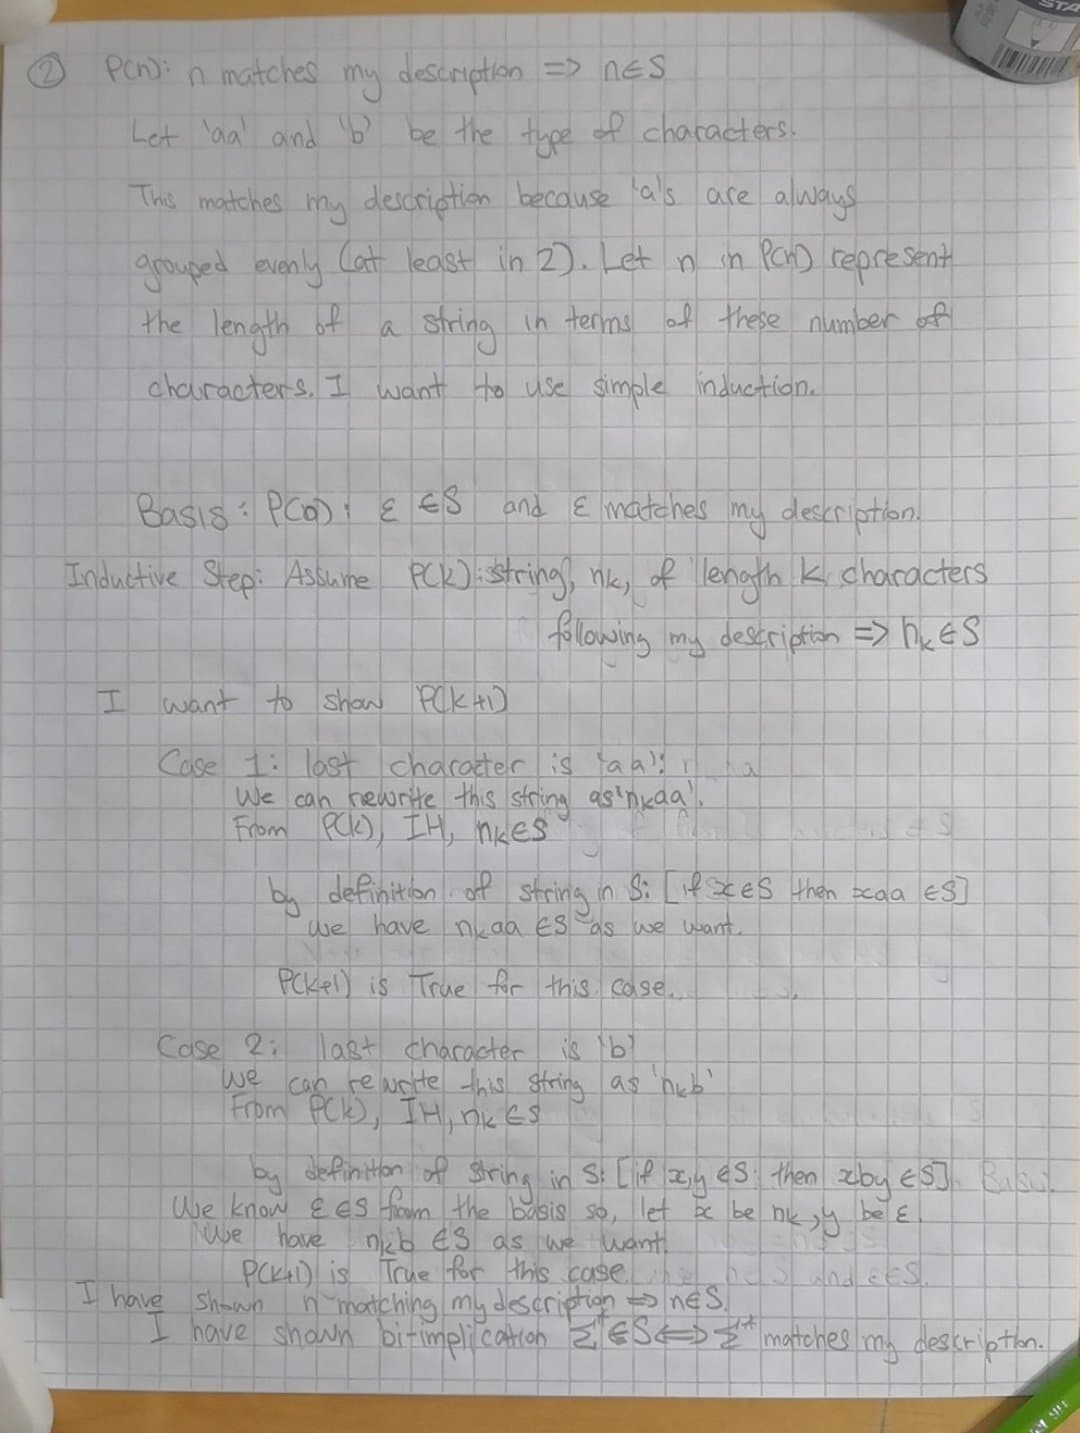 ② P(n): n matches my description => n∈S
Let 'aa' and 'b' be the type of characters.
This matches my description because 'a's are always
grouped evenly (at least in 2). Let n in P(n) represent
the length of a string in terms of these number of
characters. I want to use simple induction.
Basis: P(0): ε ∈S and ε matches my description.
Inductive Step: Assume P(k): string, nk, of length k characters
following my description => nk ∈ S
I want to show P(k+1)
Case 1: last character is 'aa':
We can rewrite this string as 'nkaa'.
From P(k), IH, nk∈S
by definition of string in S: [if x∈S then xaa ∈S]
we have nkaa ∈S as we want.
P(k+1) is True for this case.
Case 2: last character is 'b'
We can rewrite this string as 'nkb'
From P(k), IH, nk ∈S
by definition of string in S: [if x,y ∈S then xby ∈S]
We know ε∈S from the basis so, let x be nk, y be ε.
We have nkb ∈S as we want.
P(k+1) is True for this case.
I have shown n matching my description => n∈S.
I have shown bi-implication Σ* ∈S <=> Σ* matches my description.
STA